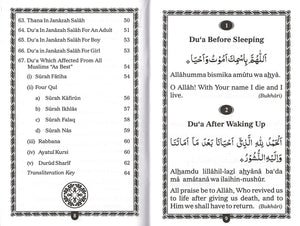 63. Thana In Janāzah Salāh 50
64. Du'a In Janāzah Salāh For An Adult 50
65. Du'a In Janāzah Salāh For Boy 50
66. Du'a In Janāzah Salāh For Girl 50
67. Du'a Which Affected From All
Muslims "As Best" 50
(i) Sūrah Fātiha 52
(ii) Four Qul
Sūrah Kāfirūn 53
Sūrah Ikhlās 53
Sūrah Falaq 53
Sūrah Nās 53
(iii) Rabbana 54
(iv) Ayatul Kursi 54
(v) Durūd Sharīf 54
Transliteration Key 64
1
Du'a Before Sleeping
اَللّٰهُمَّ بِاسْمِكَ اَمُوْتُ وَاَحْيَا
Allāhumma bismika amūtu wa aḥyā.
O Allāh! With Your name I die and I
live. (Bukhāri)
2
Du'a After Waking Up
اَلْحَمْدُ لِلّٰهِ الَّذِيْٓ اَحْيَانَا بَعْدَ مَا اَمَاتَنَا
وَاِلَيْهِ النُّشُوْرُ
Alḥamdu lillāhil-laẓi aḥyānā ba'da
mā amātanā wa ilaihin-nushūr.
All praise be to Allāh, Who revived us
to life after giving us death, and to
Him we shall have to return. (Bukhāri)